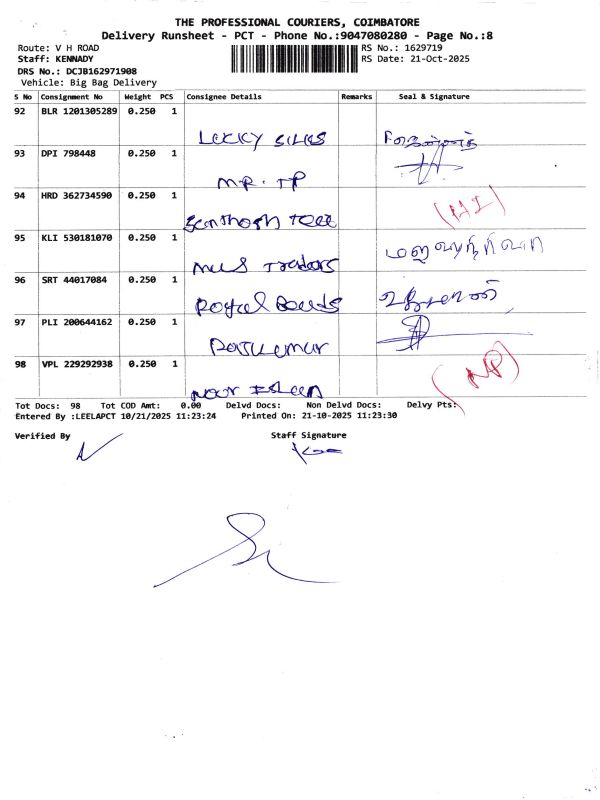 THE PROFESSIONAL COURIERS, COIMBATORE
Delivery Runsheet - PCT - Phone No.:9047080280 - Page No.:8
Route: V H ROAD
RS No.: 1629719
Staff: KENNADY
RS Date: 21-Oct-2025
DRS No.: DCJB162971908
Vehicle: Big Bag Delivery
S No Consignment No Weight PCS Consignee Details Remarks Seal & Signature
92 BLR 1201305289 0.250 1
LUCKY SILKS
93 DPI 798448 0.250 1
MR. TP
94 HRD 362734590 0.250 1
Santhosh
95 KLI 530181070 0.250 1
Traders
96 SRT 44017084 0.250 1
Royal
97 PLI 200644162 0.250 1
Rajkumar
98 VPL 229292938 0.250 1
(NP)
NOOR
Tot Docs: 98 Tot COD Amt: 0.00 Delvd Docs: Non Delvd Docs: Delvy Pts:
Entered By :LEELAPCT 10/21/2025 11:23:24 Printed On: 21-10-2025 11:23:30
Verified By
Staff Signature